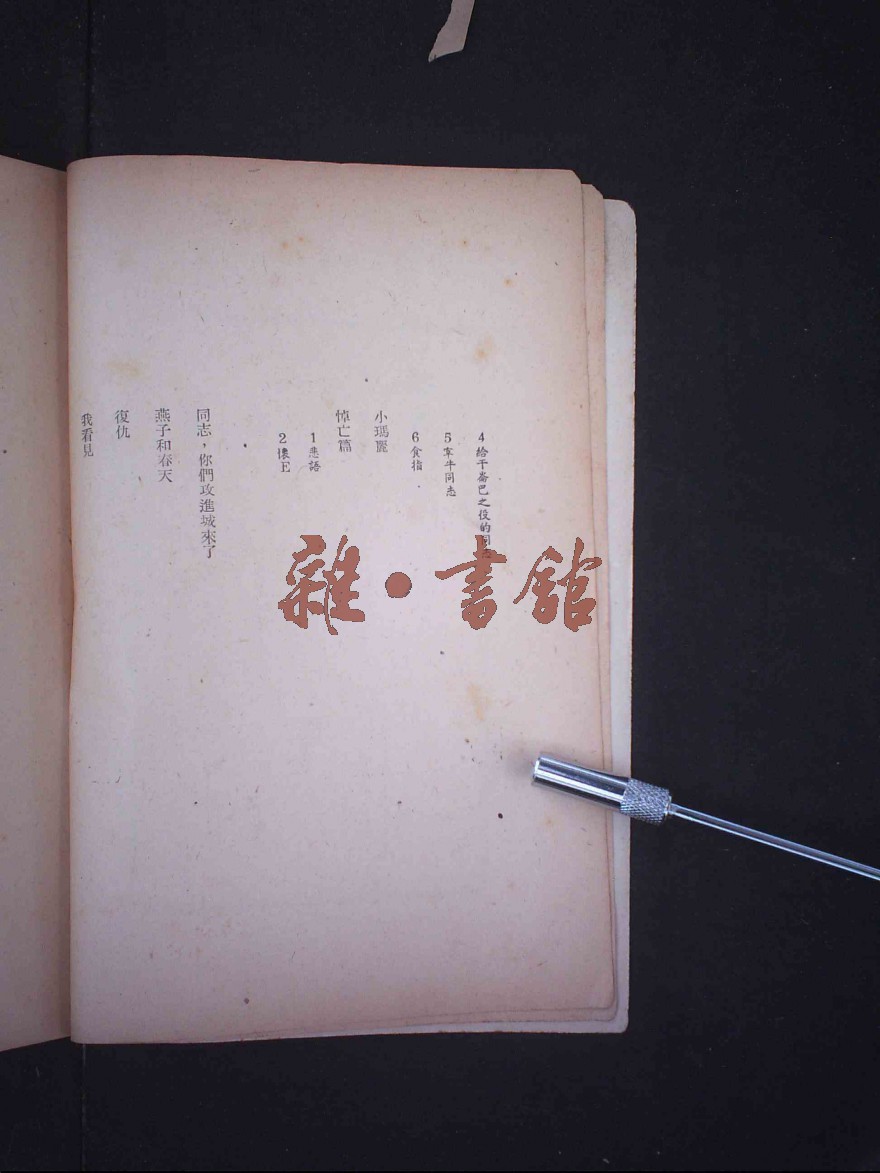 4 給干崙巴之役的同志
5 牽牛同志
6 食指
小瑪麗
悼亡篇
1 悲語
2 懷E
同志，你們攻進城來了
燕子和春天
復仇
我看見
雜·書館